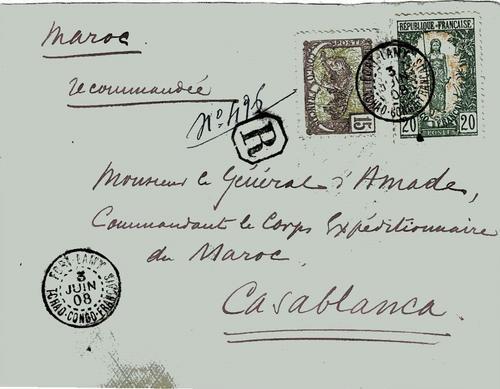 Maroc
recommandée
No 496
R
POSTE
15
RÉPUBLIQUE FRANÇAISE
20 POSTE 20
3
JUIN
08
TCHAD-CONGO
Monsieur le Général d'Amade,
Commandant le Corps Expéditionnaire
du Maroc
Casablanca.
FORT-LAMY
3
JUIN
08
TCHAD-CONGO-FRANÇAIS